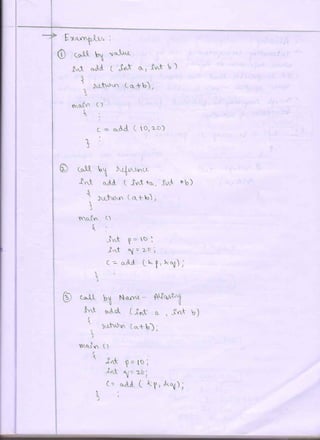 → Examples :
① call by value
int add ( int a, int b )
{
return (a+b);
}
main ()
{
:
c = add ( 10, 20)
} :
② call by reference
int add ( int *a, int *b)
{
return (a+b);
}
main ()
{ :
int p=10;
int q=20;
c = add (&p, &q);
} :
③ call by Name - Aliasing
int add (int a , int b)
{
return (a+b);
}
main ()
{
int p=10;
int q=20;
c= add ( &p, &q);
} :